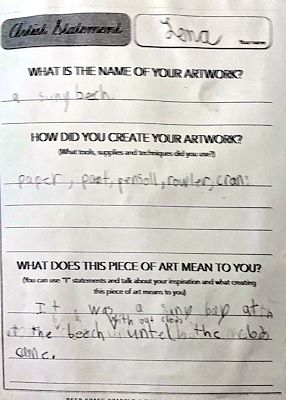 Artist Statement
Lena
WHAT IS THE NAME OF YOUR ARTWORK?
a suny bech
HOW DID YOU CREATE YOUR ARTWORK?
(What tools, supplies and techniques did you use?)
paper, pant, pensoll, rowler, crans
WHAT DOES THIS PIECE OF ART MEAN TO YOU?
(You can use "I" statements and talk about your inspiration and what creating
this piece of art means to you)
It was a suny bay at
with out clobs
at the beech untel the clobs
came.